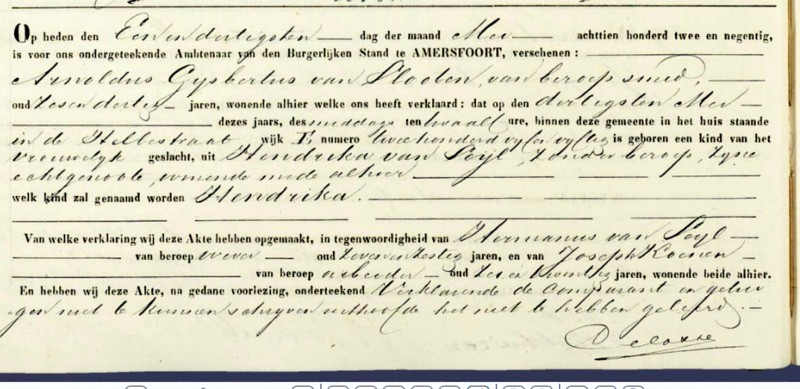 Op heden den Een en dertigsten dag der maand Mei achttien honderd twee en negentig,
is voor ons ondergeteekende Ambtenaar van den Burgerlijken Stand te AMERSFOORT, verschenen:
Arnoldus Gysbertus van Slooten, van beroep smid,
oud Zes en dertig jaren, wonende alhier welke ons heeft verklaard: dat op den dertigsten Mei
dezes jaars, des middags ten twaalf ure, binnen deze gemeente in het huis staande
in de wijk numero twee honderd vyf en vyftig is geboren een kind van het
vrouwelyk geslacht, uit Hendrika van zonder beroep, zyne
echtgenoote, wonende mede alhier
welk kind zal genaamd worden Hendrika.
Van welke verklaring wij deze Akte hebben opgemaakt, in tegenwoordigheid van Hermanus van
van beroep wever oud Zeven en Zestig jaren, en van Joseph
van beroep arbeider oud Zes en twintig jaren, wonende beide alhier.
En hebben wij deze Akte, na gedane voorlezing, onderteekend Verklarende de comparant en getui
gen niet te kunnen schryven uithoofde het niet te hebben geleerd.